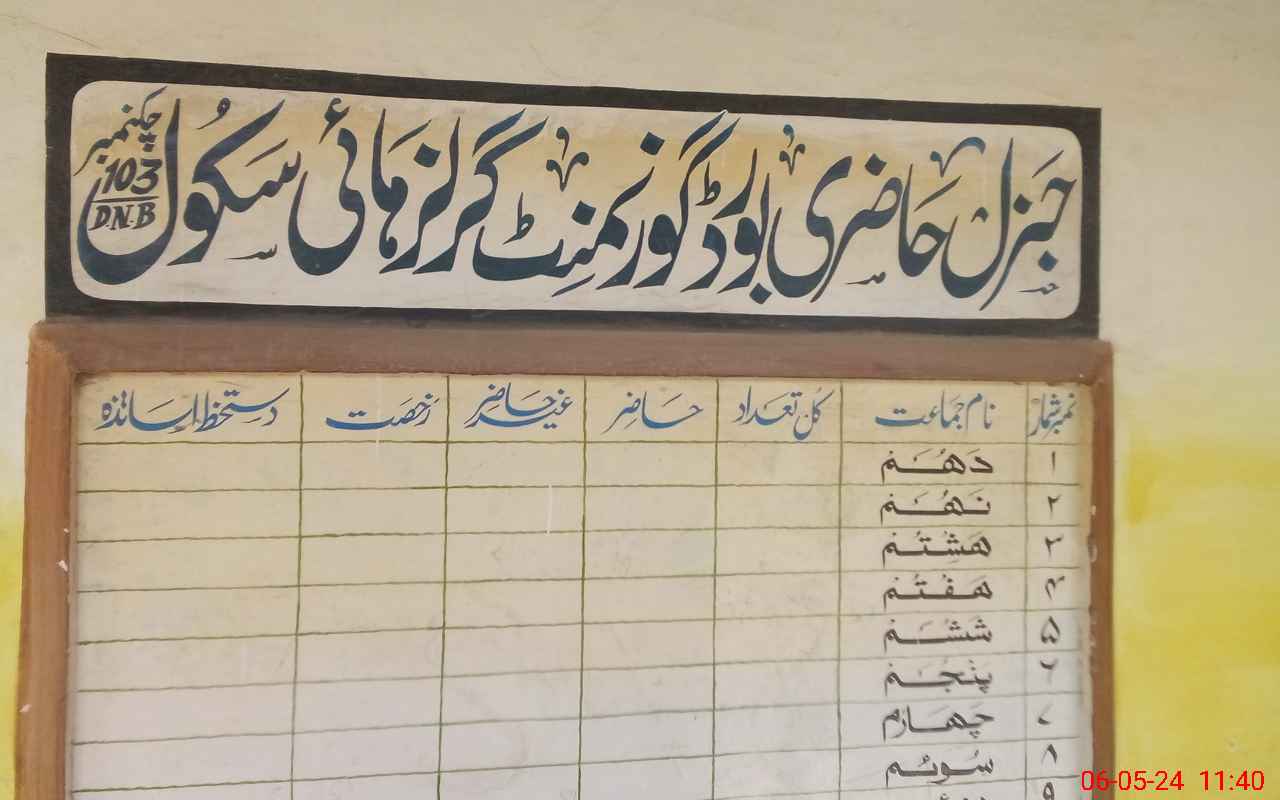 جنرل حاضری بورڈ گورنمنٹ گرلز ہائی سکول چکنمبر 103 D.N.B
نمبر شمار نام جماعت کل تعداد حاضر غیر حاضر رخصت دستخط اساتذہ
۱ دھم
۲ نھم
۳ ھشتم
۴ ھفتم
۵ ششم
۶ پنجم
۷ چھارم
۸ سوئم
۹
06-05-24 11:40